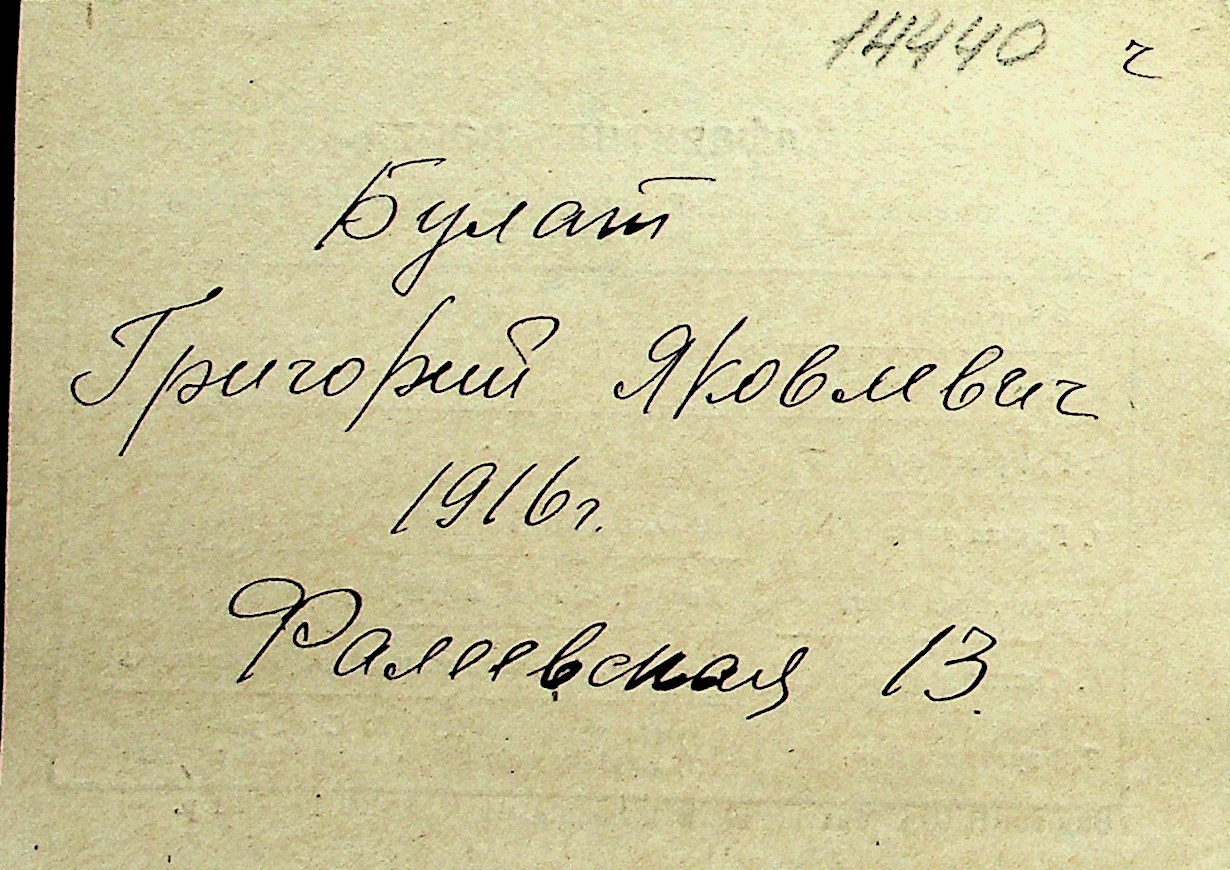 14440 ч
Булат
Григорий Яковлевич
1916 г.
Фалеевская 13.